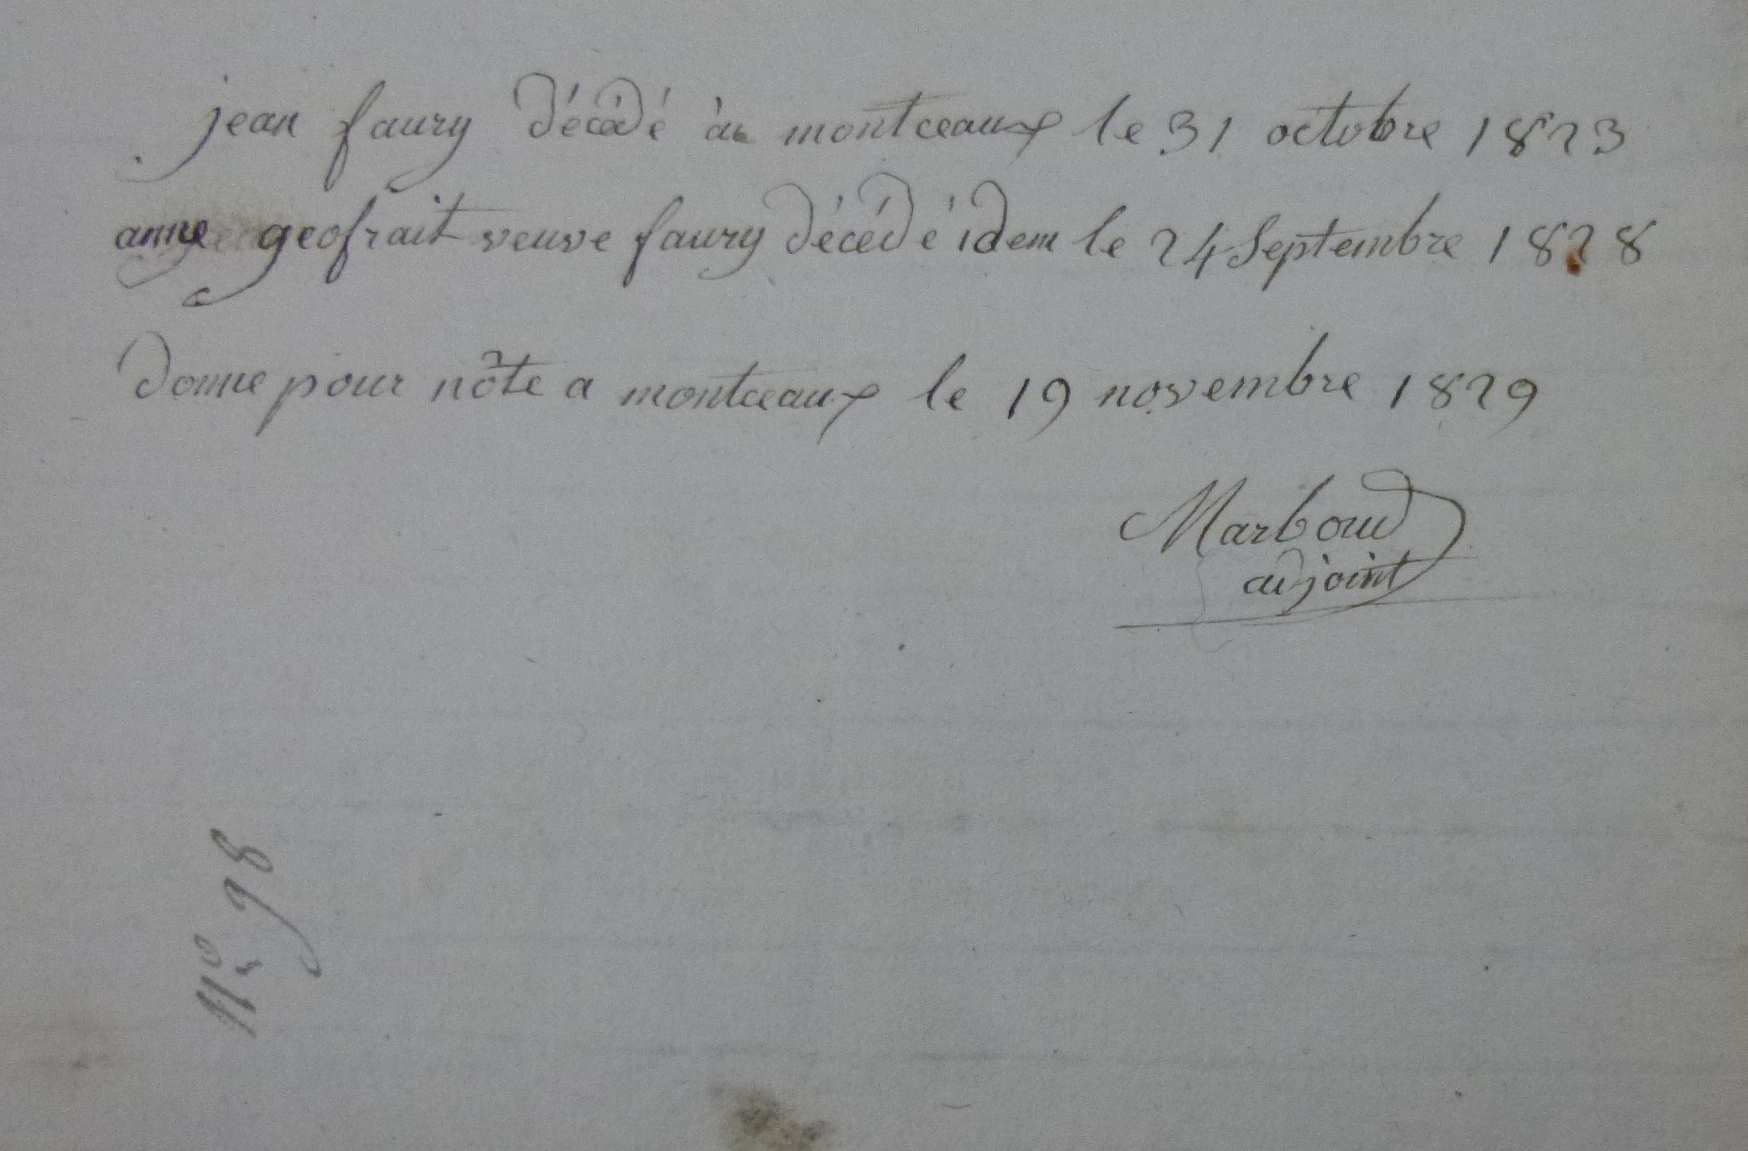 jean faury décédé à montceaux le 31 octobre 1823
anne geofrait veuve faury décédé idem le 24 Septembre 1828
donne pour nôte a montceaux le 19 novembre 1829
Marboud
adjoint
N° 98